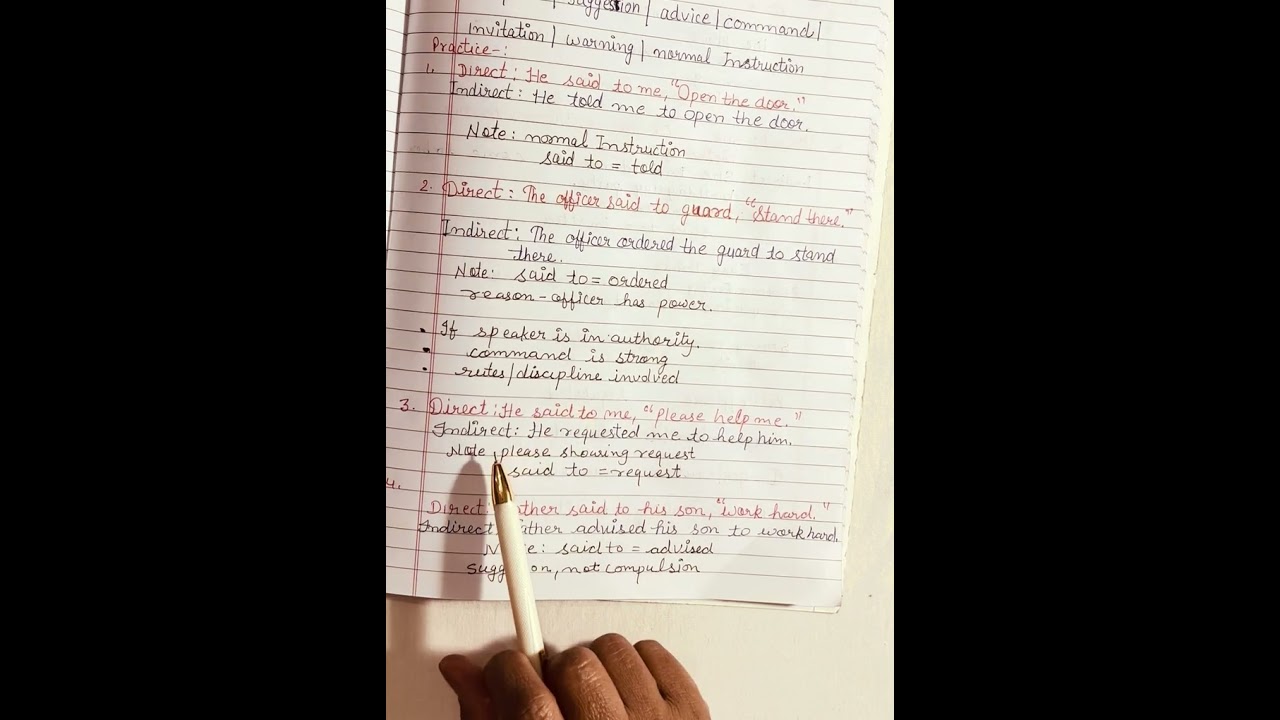 suggestion | advice | command |
Invitation | warning | normal Instruction
Practice-:
1. Direct: He said to me, "Open the door."
Indirect: He told me to open the door.
Note: normal Instruction
said to = told
2. Direct: The officer said to guard, "Stand there."
Indirect: The officer ordered the guard to stand
there.
Note: said to = ordered
reason - officer has power.
• If speaker is in authority.
• command is strong
• rules/discipline involved
3. Direct: He said to me, "Please help me."
Indirect: He requested me to help him.
Note please showing request
said to = request
4.
Direct: said to his son, "work hard."
Indirect advised his son to work hard.
said to = advised
not compulsion